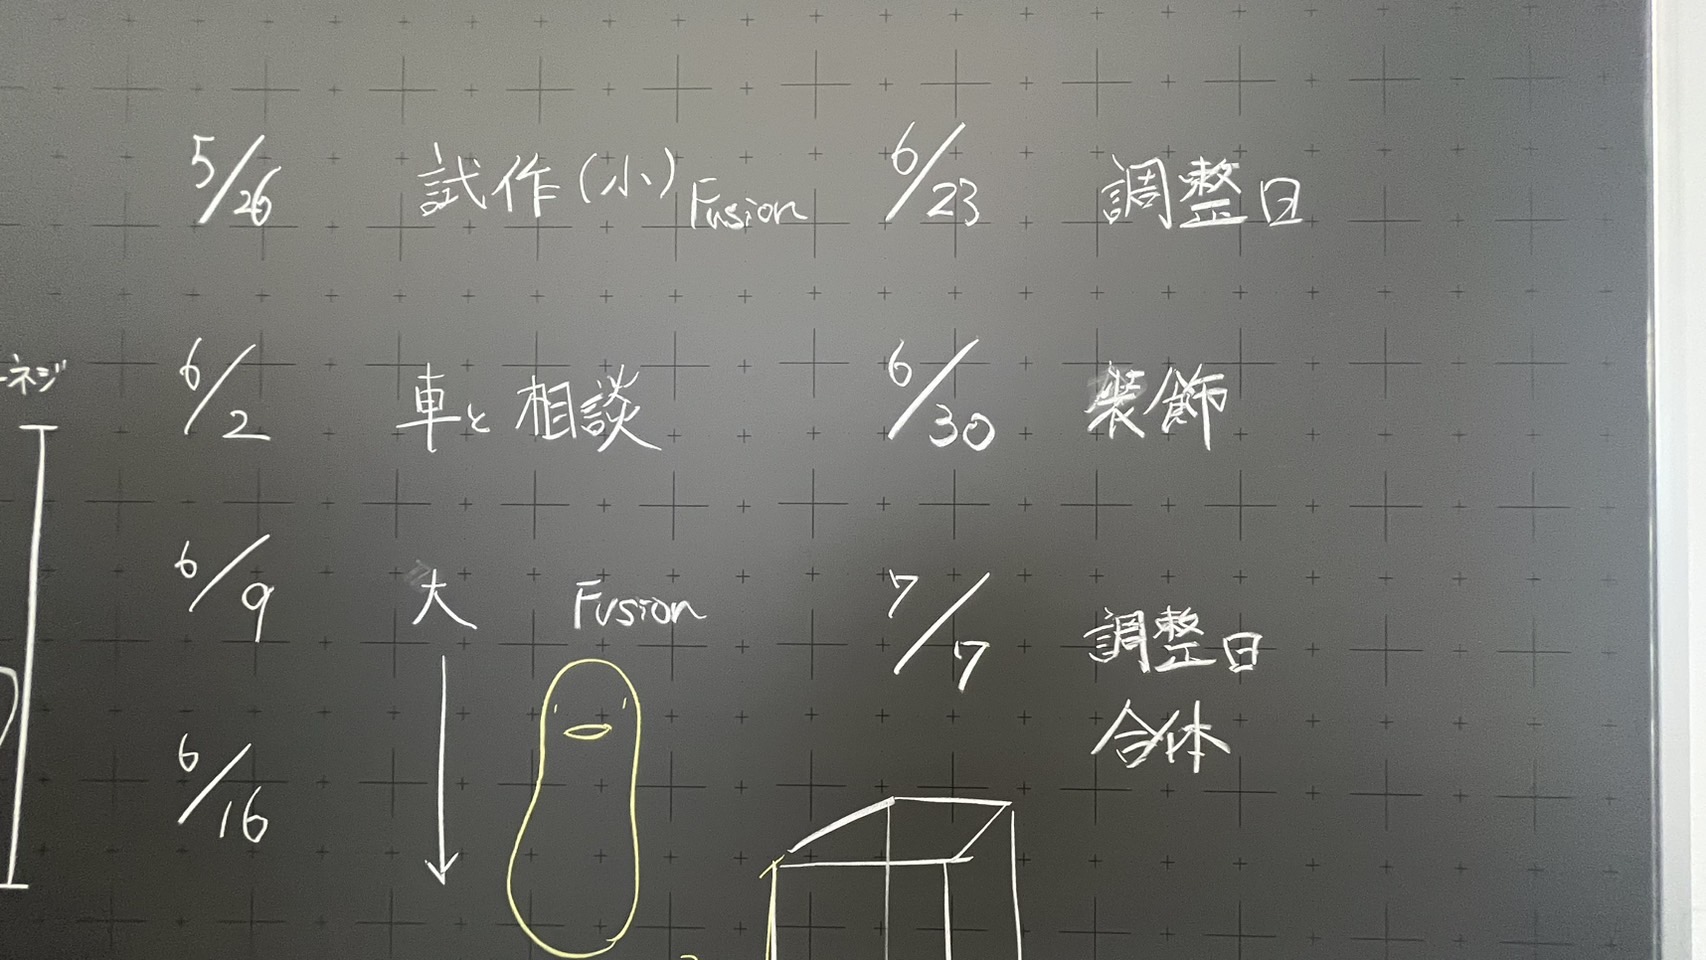 5/26 試作(小) Fusion
6/2 車と相談
6/9 大 Fusion
6/16
6/23 調整日
6/30 装飾
7/7 調整日
合体
ネジ